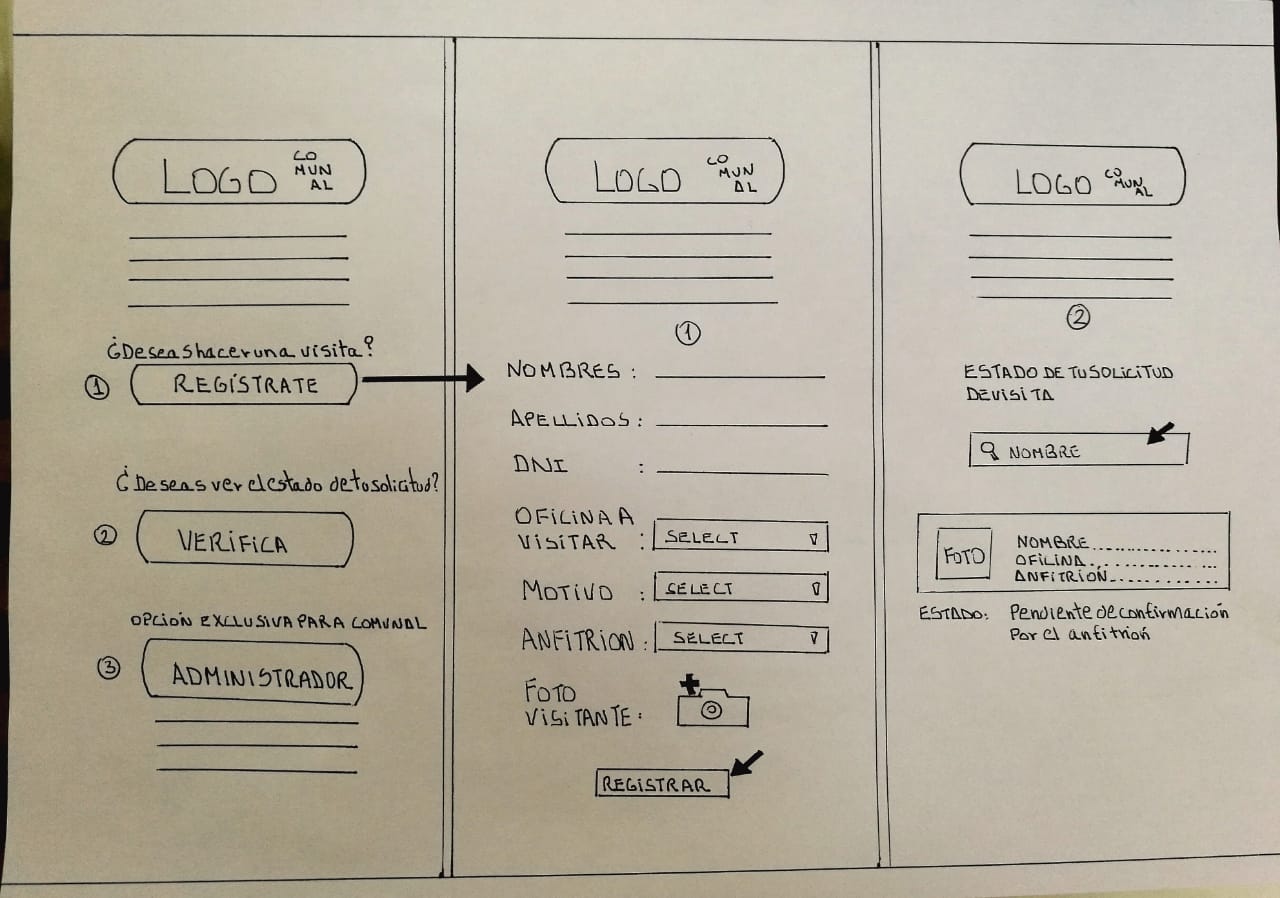 LOGO CO
MUN
AL
¿Deseas hacer una visita?
1 REGÍSTRATE
¿Deseas ver el estado de tu solicitud?
2 VERIFICA
OPCIÓN EXCLUSIVA PARA COMUNAL
3 ADMINISTRADOR
LOGO CO
MUN
AL
1
NOMBRES :
APELLIDOS :
DNI :
OFICINA A
VISITAR : SELECT
MOTIVO : SELECT
ANFITRION : SELECT
FOTO
VISITANTE :
REGISTRAR
LOGO CO
MUN
AL
2
ESTADO DE TU SOLICITUD
DE VISITA
NOMBRE
FOTO
NOMBRE..................
OFICINA..................
ANFITRION...............
ESTADO: Pendiente de confirmación
Por el anfitrión